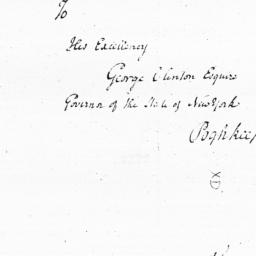 To
His Excellency
George Clinton Esquire
Governor of the State of New York
Poghkee